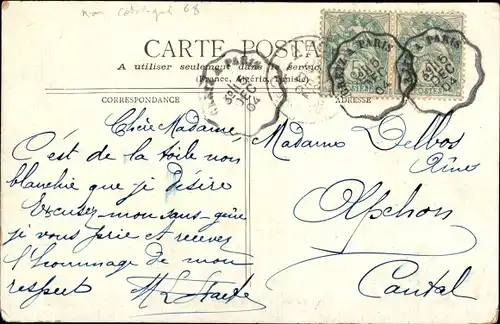 non catalogué 68
CARTE POSTALE
A utiliser seulement dans le service
(France, Algérie, Tunisie)
CORRESPONDANCE
ADRESSE
A PARIS
15
DEC
04
A PARIS
15
DEC
04
A PARIS
15
DEC
Chère Madame,
C'est de la toile non
blanchie que je désire
Excusez-mon sans-gêne
je vous prie et recevez
l'hommage de mon
respect
Madame Delbos
Aînée
Apchon
Cantal